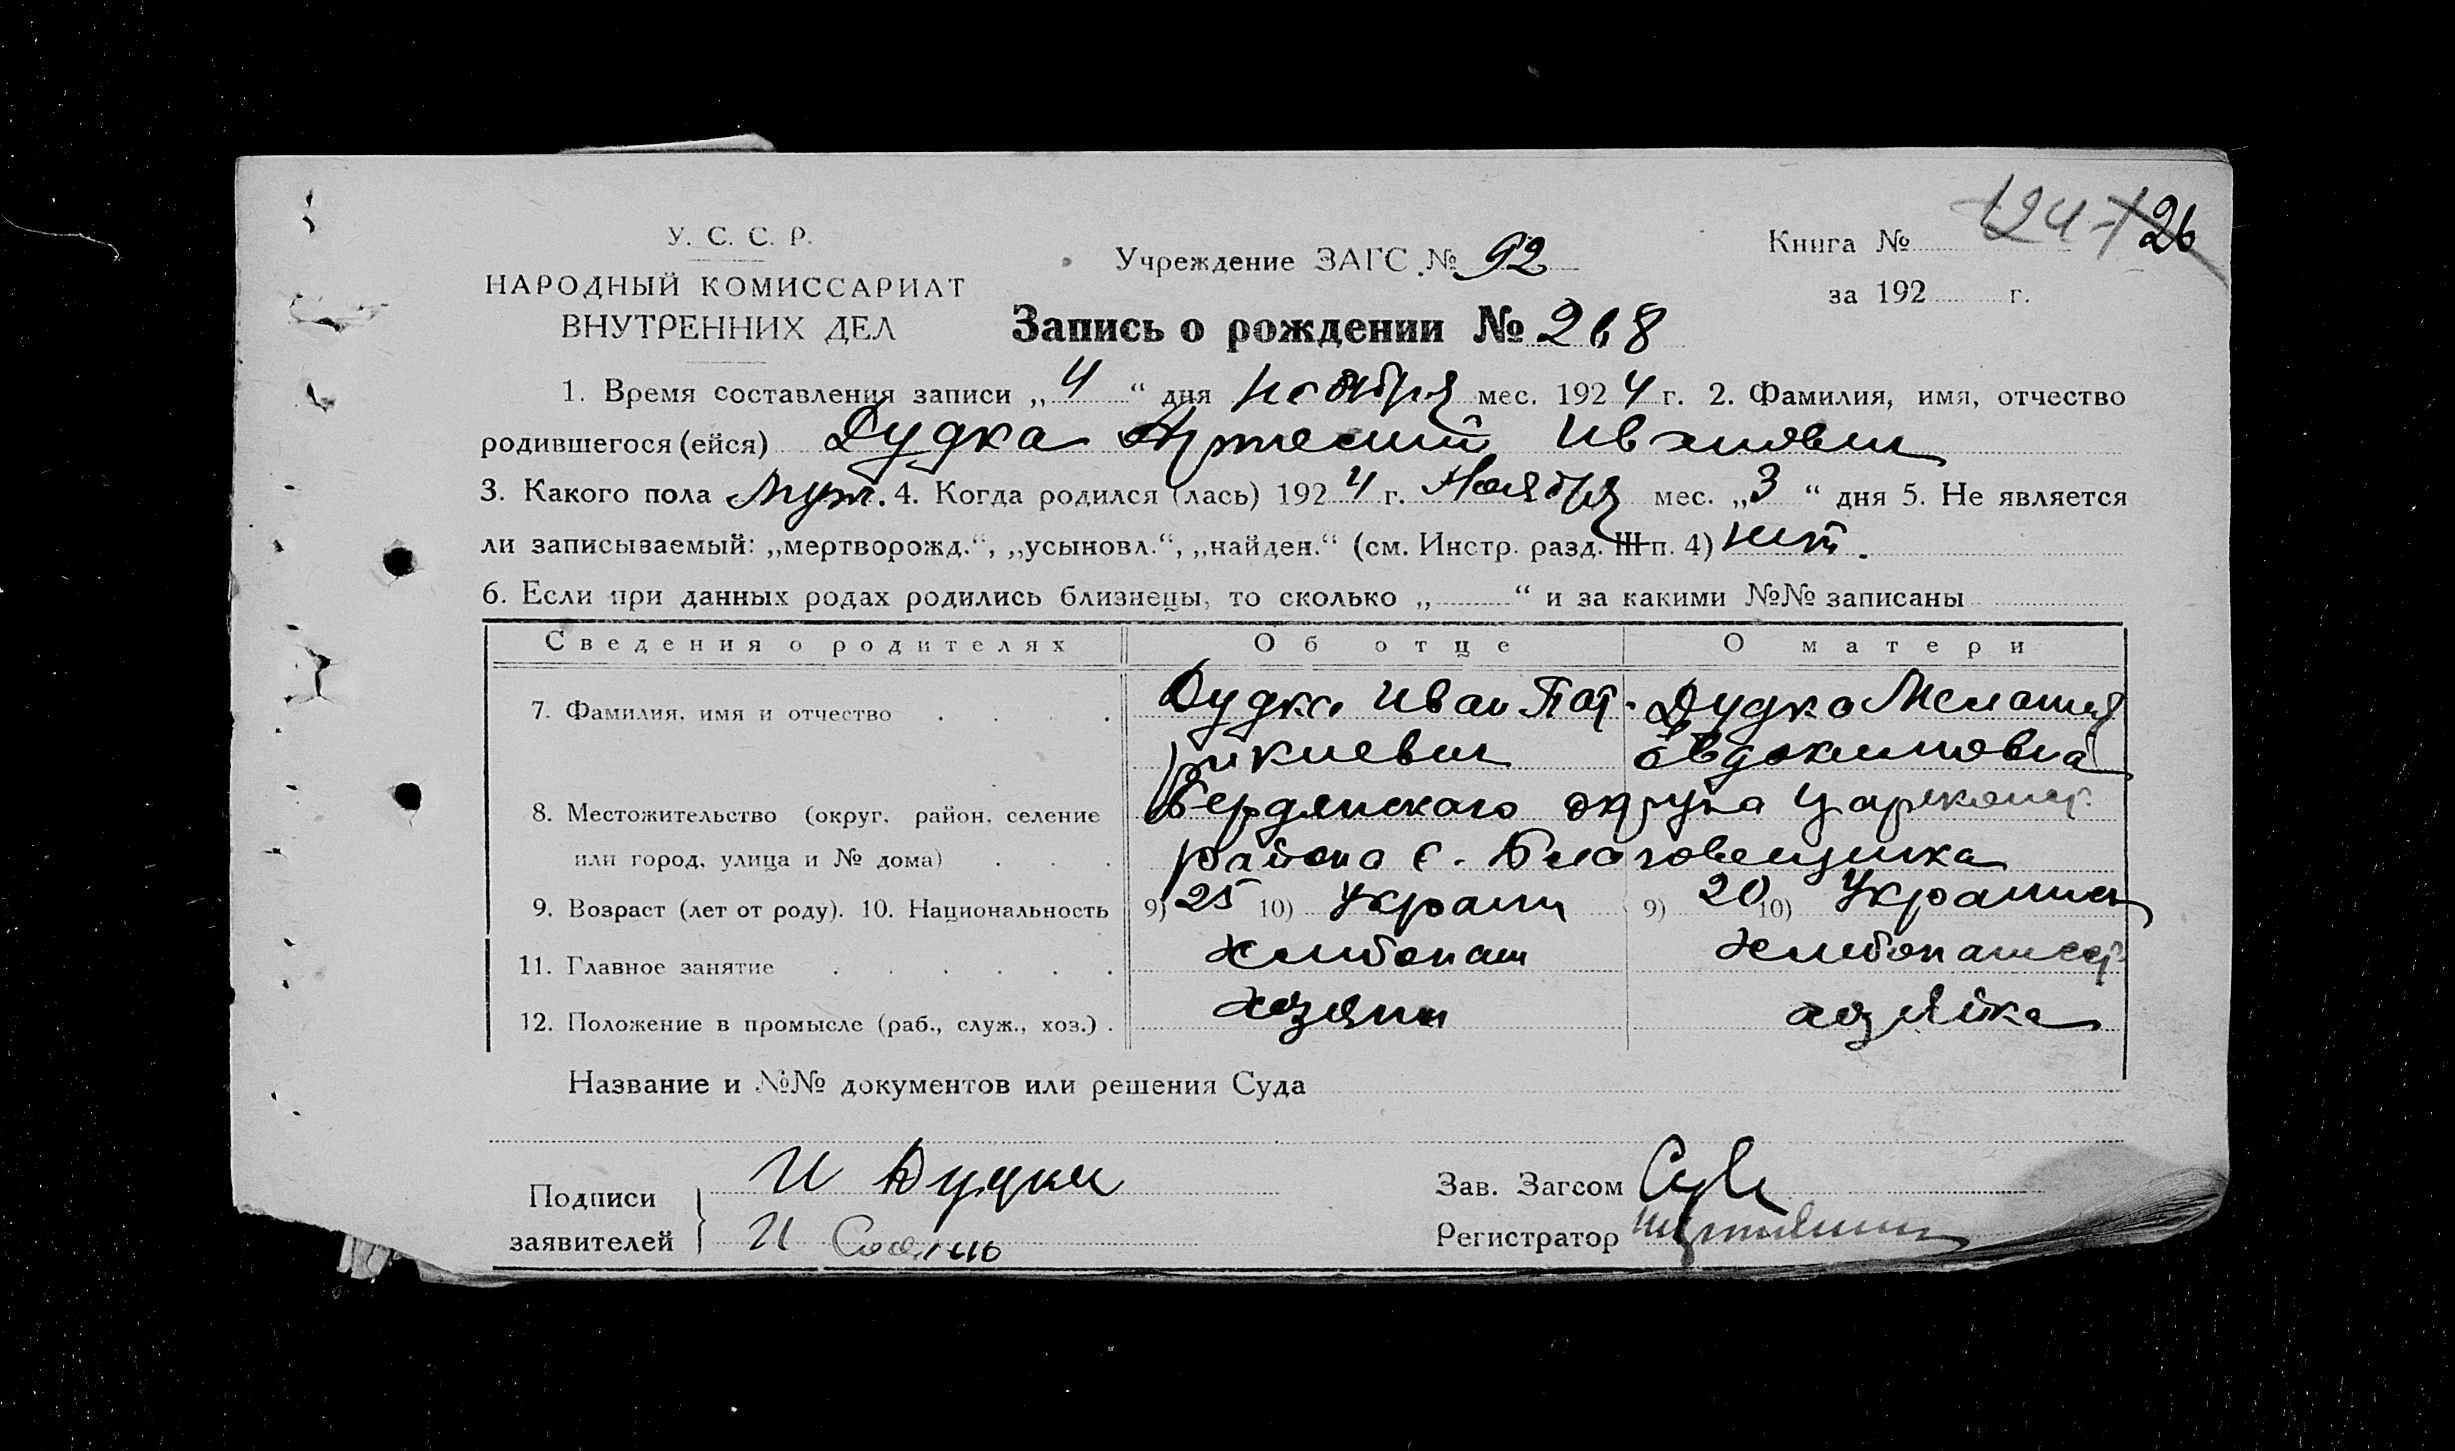 124 126
У. С. С. Р.
НАРОДНЫЙ КОМИССАРИАТ
ВНУТРЕННИХ ДЕЛ
Учреждение ЗАГС № 92
Книга №
за 192 г.
Запись о рождении № 268
1. Время составления записи „ 4 “ дня ноября мес. 1924 г. 2. Фамилия, имя, отчество
родившегося (ейся) Дудка Артемий Иванович
3. Какого пола муж. 4. Когда родился (лась) 1924 г. Ноября мес. „ 3 “ дня 5. Не является
ли записываемый: „мертворожд.“, „усыновл.“, „найден.“ (см. Инстр. разд. III п. 4) нет.
6. Если при данных родах родились близнецы, то сколько „ “ и за какими №№ записаны
Сведения о родителях Об отце О матери
7. Фамилия, имя и отчество Дудка Иван Пат- Дудка Мелания
рикиевич Евдокимовна
8. Местожительство (округ, район, селение Бердянского округа Цареконст.
или город, улица и № дома) района с. Благовещенка
9. Возраст (лет от роду). 10. Национальность 9) 25 10) Украин 9) 20 10) Украинка
11. Главное занятие хлибопаш хлибопашест
12. Положение в промысле (раб., служ., хоз.) хозяин хозяйка
Название и №№ документов или решения Суда
Подписи заявителей
И Дудка
И
Зав. Загсом
Регистратор